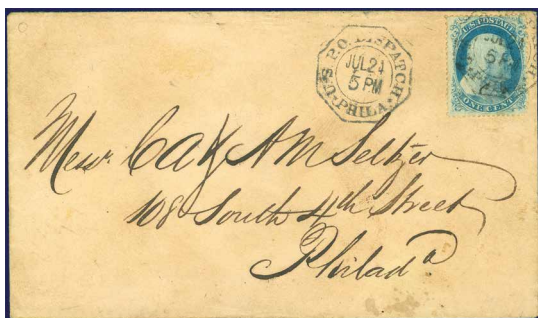 U.S. P.O. DISPATCH
JUL 21
5 PM
PHILA.
U.S. POSTAGE
ONE CENT
Messrs. C A & A M Seltzer
108 South 4th Street
Philada